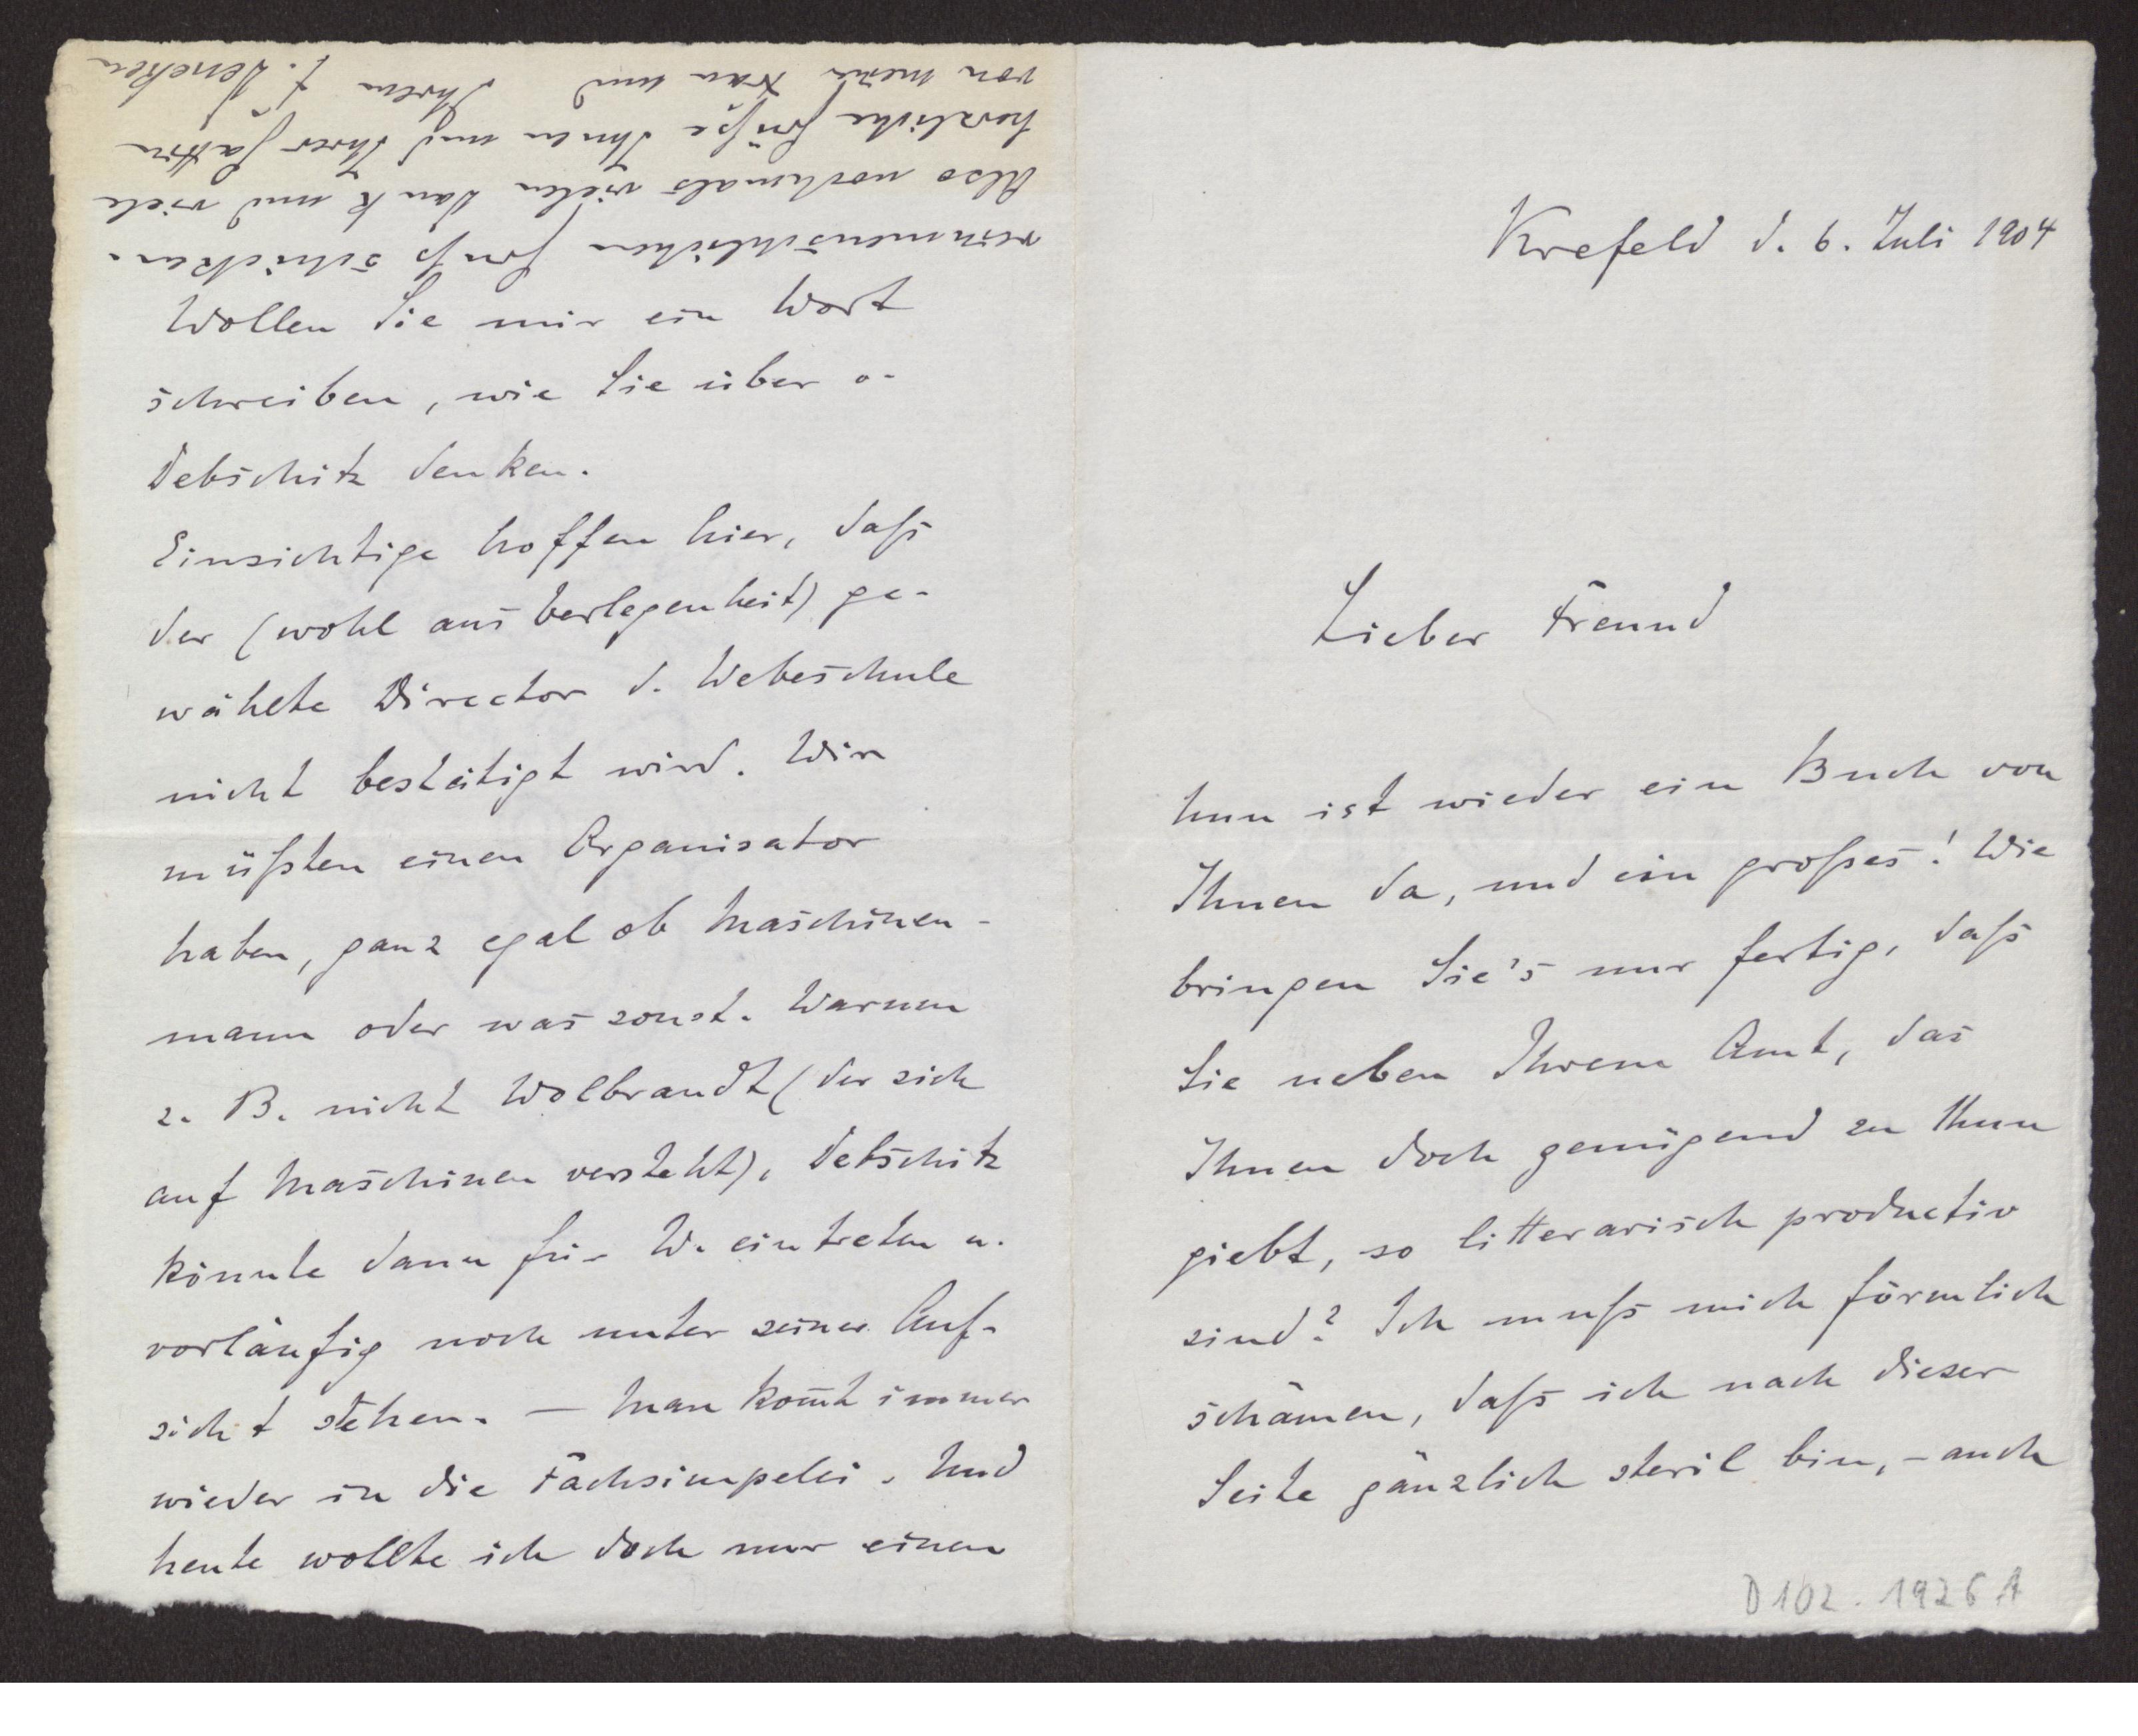 Krefeld d. 6. Juli 1904
Lieber Freund
Nun ist wieder ein Buch von
Ihnen da, und ein großes! Wie
bringen Sie's nur fertig, daß
Sie neben Ihrem Amt, das
Ihnen doch genügend zu thun
giebt, so litterarisch productiv
sind? Ich muß mich förmlich
schämen, daß ich nach dieser
Seite gänzlich steril bin, – auch
D 102. 1926 A
Wollen Sie mir ein Wort
schreiben, wie Sie über v.
Debschitz denken.
Einsichtige hoffen hier, daß
der (wohl aus Verlegenheit) ge-
wählte Director d. Webeschule
nicht bestätigt wird. Wir
müßten einen Organisator
haben, ganz egal ob Maschinen-
mann oder was sonst. Warum
z. B. nicht Wolbrandt (der sich
auf Maschinen versteht), Debschitz
könnte dann für W. eintreten u.
vorläufig noch unter seiner Auf-
sicht stehen. – Man kom̄t immer
wieder in die Fachsimpelei. Und
heute wollte ich doch nur einen
reinmenschlichen Gruß schicken.
Also nochmals vielen Dank und viele
herzliche Grüße Ihnen und Ihrer Gattin
von meiner Frau und Ihrem F. Deneken